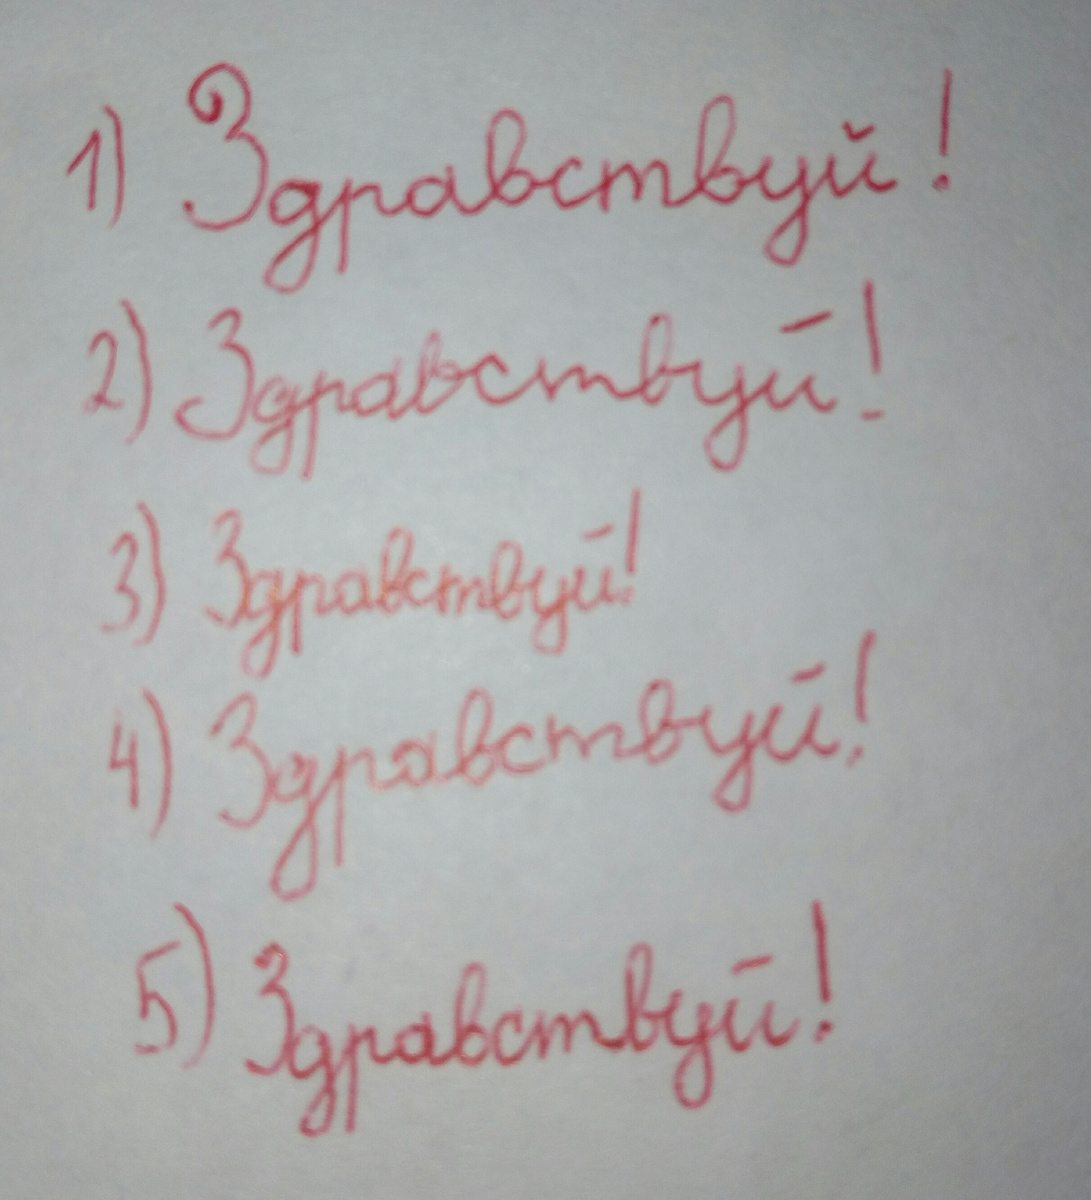 1) Здравствуй!
2) Здравствуй!
3) Здравствуй!
4) Здравствуй!
5) Здравствуй!